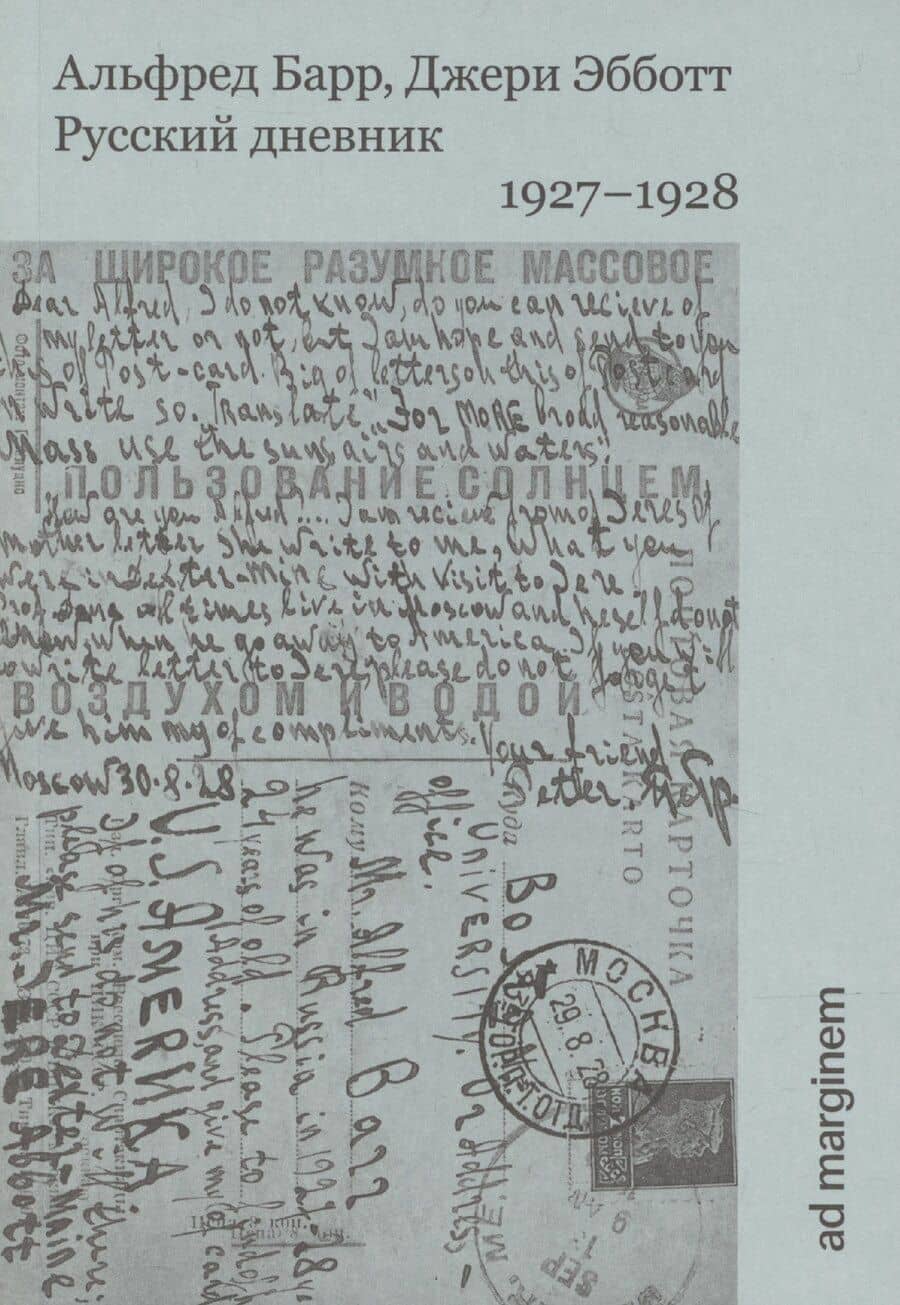 Альфред Барр, Джери Эбботт
Русский дневник
1927–1928
ЗА ШИРОКОЕ РАЗУМНОЕ МАССОВОЕ
Dear Alfred, I do not know, do you can recieve of
my letter or not, but I am hope and send to you
of Post-card. Big of letters on this of Post-card
write so. Translate „For MORE broad reasonable
Mass use the sun, airs and waters."
ПОЛЬЗОВАНИЕ СОЛНЦЕМ
How are you Alfred?... I am recieve from of Jere's of
mother letter. She write to me, what you
were in Dexter-Maine with visit to Jere.
Prof. Dana all times live in Moscow and heself do not
know, when he go away to America. If you will
write letter to Jere, please do not forget
ВОЗДУХОМ И ВОДОЙ
give him my of compliments.
Your friend
Petter
Moscow 30.8.28
ПОЧТОВАЯ КАРТОЧКА
POSTA KARTO
Куда
Box
University. Or address
office.
Кому Mr. Alfred Barr
he was in Russia in 1927-28 y.
24 years of old. Please to find of
address and give my of card
U.S. AMERIKA
please send to Dexter-Maine
Mr. JERE Abbott
МОСКВА
29.8.28
SEP
ad marginem